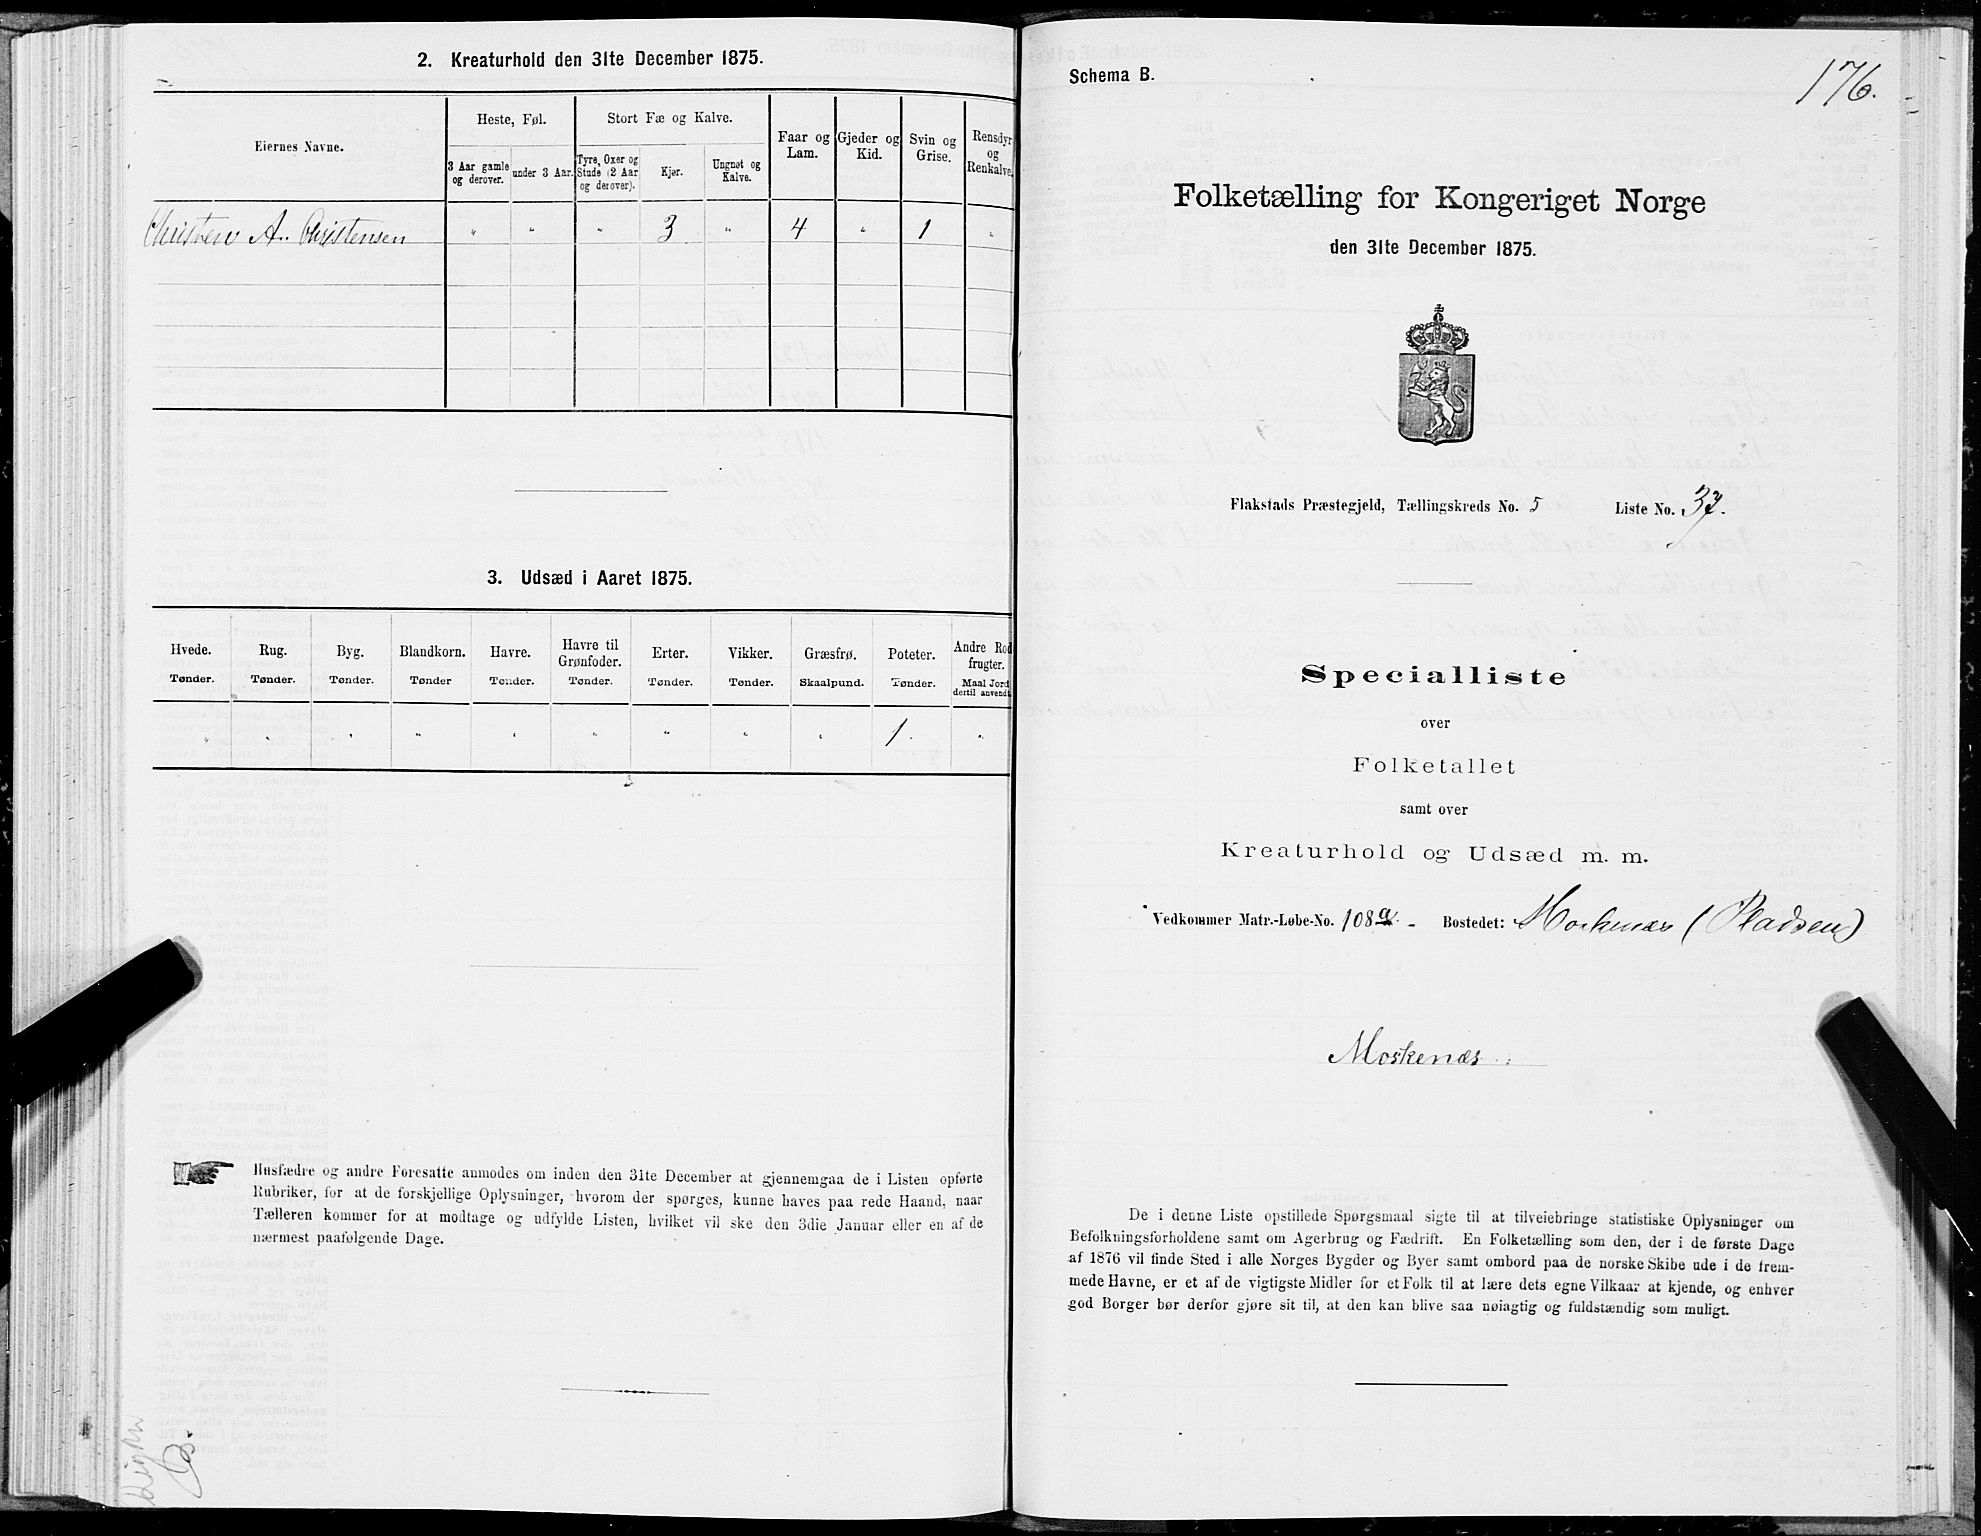 2. Kreaturhold den 31te December 1875.
Eiernes Navne.
Heste, Føl.
Stort Fæ og Kalve.
Faar og Lam.
Gjeder og Kid.
Svin og Grise.
Rensdyr og Renkalve.
3 Aar gamle og derover.
under 3 Aar.
Tyre, Oxer og Stude (2 Aar og derover).
Kjør.
Ungnøt og Kalve.
Christen A. Christensen " " " 3 " 4 " 1 "
3. Udsæd i Aaret 1875.
Hvede. Rug. Byg. Blandkorn. Havre. Havre til Grønfoder. Erter. Vikker. Græsfrø. Poteter. Andre Rodfrugter.
Tønder. Tønder. Tønder. Tønder Tønder. Tønder. Tønder. Tønder. Skaalpund. Tønder. Maal Jord dertil anvendt.
" " " " " " " " " 1. "
Husfædre og andre Foresatte anmodes om inden den 31te December at gjennemgaa de i Listen opførte
Rubriker, for at de forskjellige Oplysninger, hvorom der spørges, kunne haves paa rede Haand, naar
Tælleren kommer for at modtage og udfylde Listen, hvilket vil ske den 3die Januar eller en af de
nærmest paafølgende Dage.
Schema B.
176.
Folketælling for Kongeriget Norge
den 31te December 1875.
Flakstads Præstegjeld, Tællingskreds No. 5 Liste No. 37.
Specialliste
over
Folketallet
samt over
Kreaturhold og Udsæd m. m.
Vedkommer Matr.-Løbe-No. 108a. - Bostedet: Moskenæs (Pladsen)
Moskenæs
De i denne Liste opstillede Spørgsmaal sigte til at tilveiebringe statistiske Oplysninger om
Befolkningsforholdene samt om Agerbrug og Fædrift. En Folketælling som den, der i de første Dage
af 1876 vil finde Sted i alle Norges Bygder og Byer samt ombord paa de norske Skibe ude i de frem-
mede Havne, er et af de vigtigste Midler for et Folk til at lære dets egne Vilkaar at kjende, og enhver
god Borger bør derfor gjøre sit til, at den kan blive saa nøiagtig og fuldstændig som muligt.